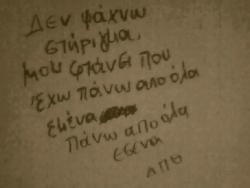 Δεν ψάχνω
στήριγμα,
μου φτάνει που
Έχω πάνω απο όλα
εμένα
Πάνω απο όλα
εσένα